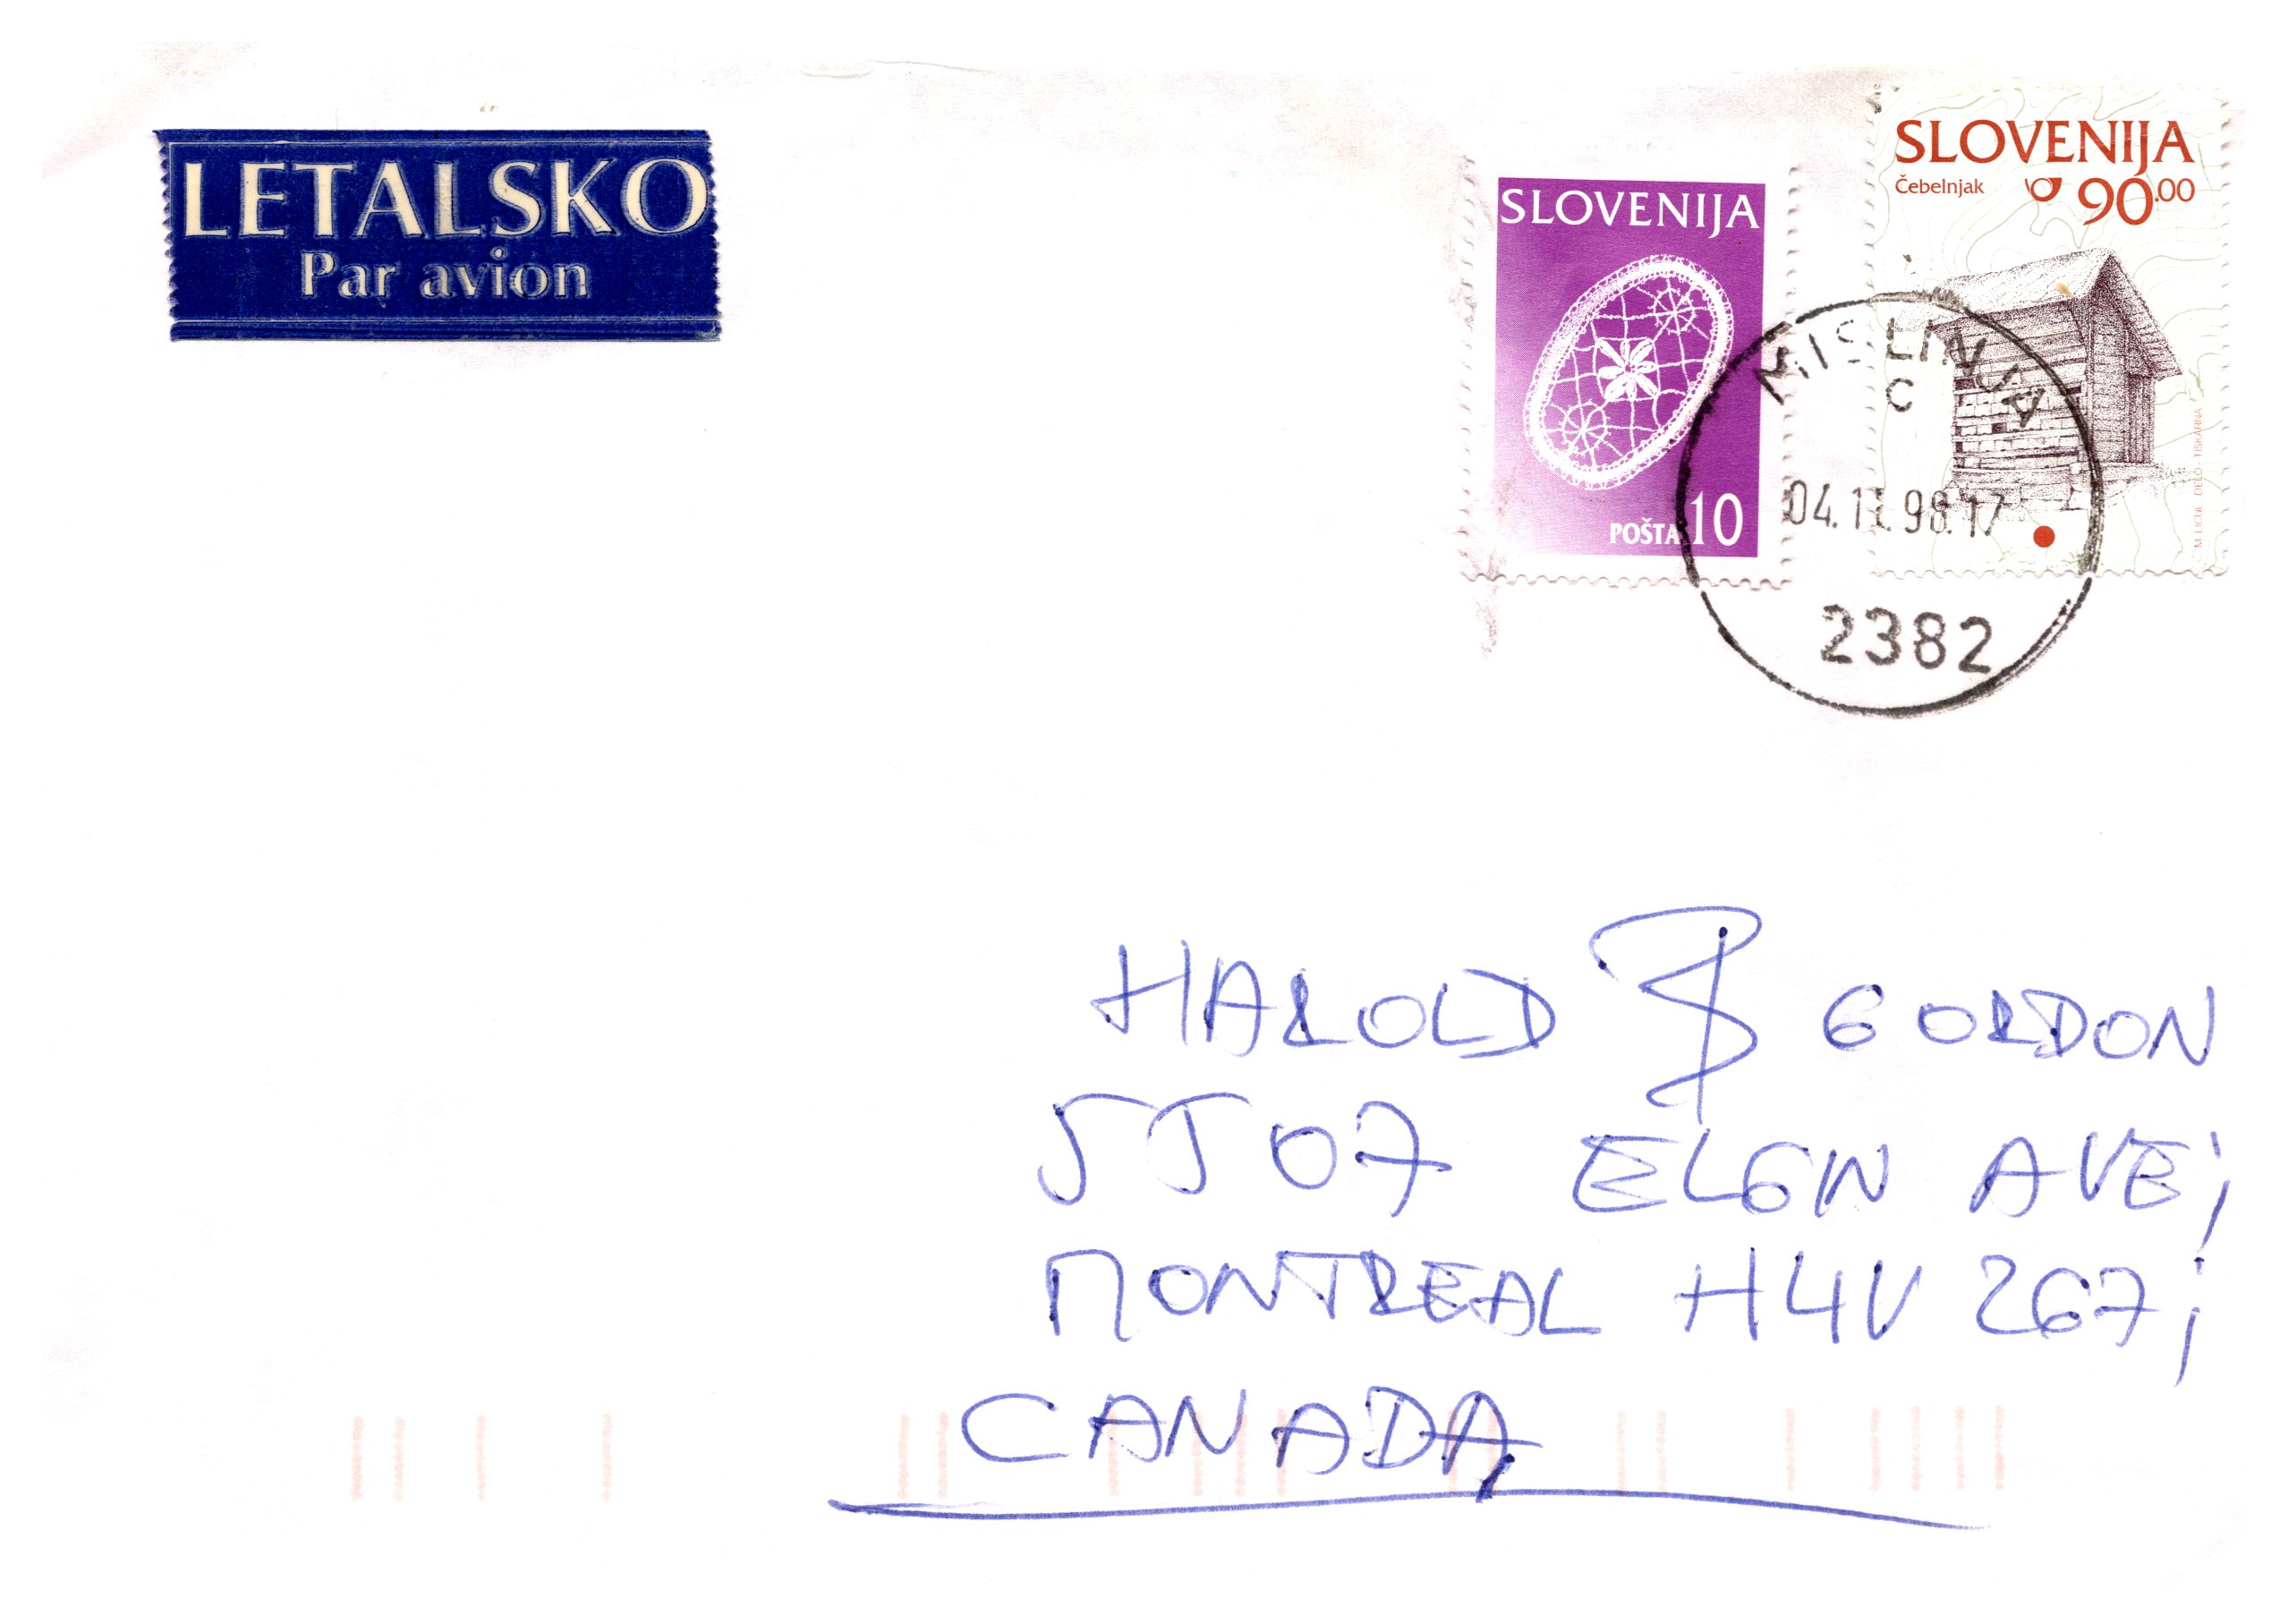 LETALSKO
Par avion
SLOVENIJA
POŠTA 10
SLOVENIJA
Čebelnjak
90.00
M. LICUL DELO - TISKARNA
MISLINJA
C
04.11.98.17
2382
HAROLD & GORDON
5507 ELGIN AVE;
MONTREAL H4V 2G7;
CANADA